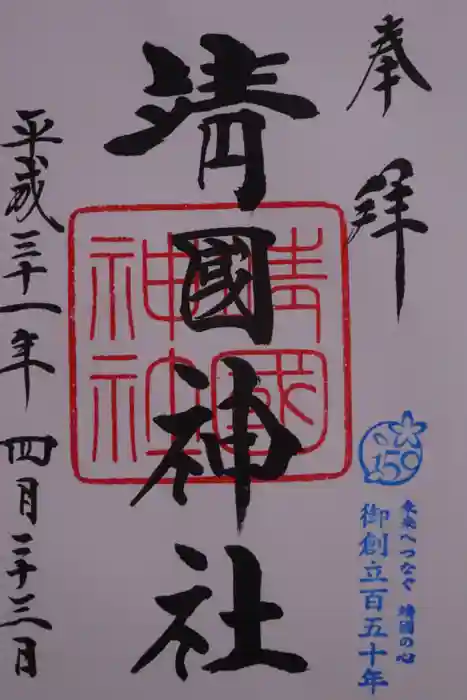 奉拝
靖國神社
靖國神社
平成三十一年四月二十三日
150
未来へつなぐ 靖國の心
御創立百五十年